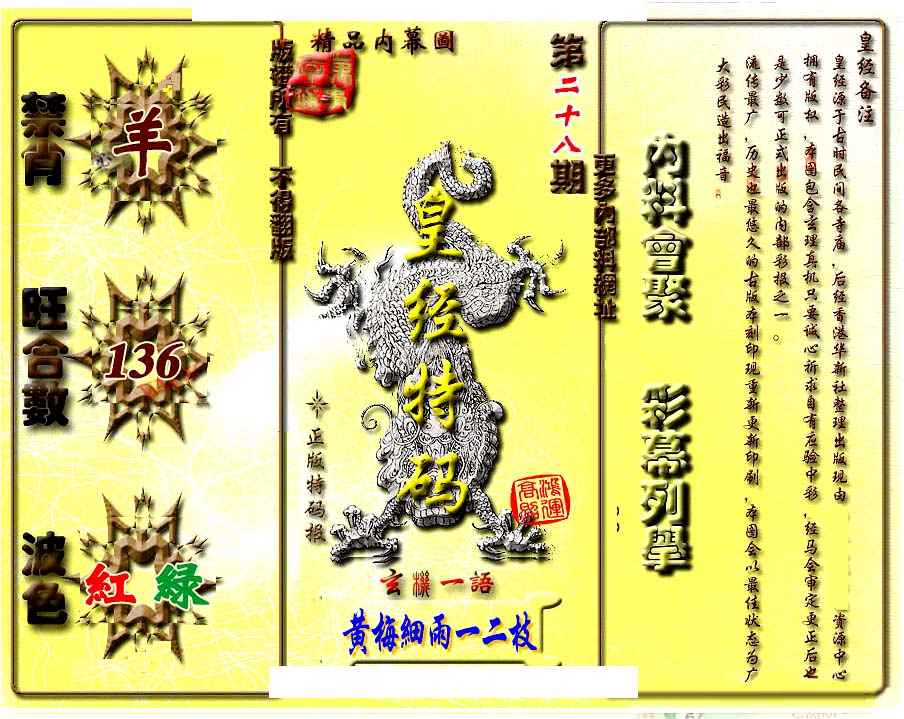 禁肖
羊
旺合數
136
波色
紅 綠
版權所有 不得翻版
精品内幕圖
第二十八期
更多內部料網址
皇经特码
正版特码报
鴻運高照
玄機一語
黃梅細雨一二枝
內料會聚 彩幕列舉
皇经备注
皇经源于古时民间各寺庙，后经香港华新社整理出版现由 资源中心
拥有版权，本图包含玄理真机只要诚心祈求自有应验中彩，经马会审定更正后也
是少数可正式出版的内部彩报之一。
流传最广，历史也最悠久的古版本刻印现重新更新印刷，本图会以最佳状态为广
大彩民造出福音